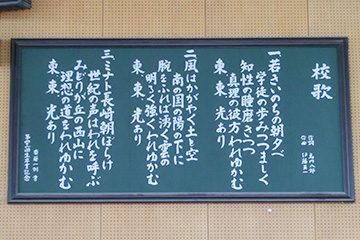 校歌
一若きいのちの朝夕べ
学徒の歩みつつましく
知性の瞳磨きつつ
真理の彼方われゆかむ
東 東 光あり
二風はかがやく土と空
南の国の陽の下に
腕をふれば湧く雲の
明るく強くわれゆかむ
東 東 光あり
三ミナト長崎朝ぼらけ
世紀の声はわれを呼ぶ
みどりが丘の西山に
理想の道をわれゆかむ
東 東 光あり